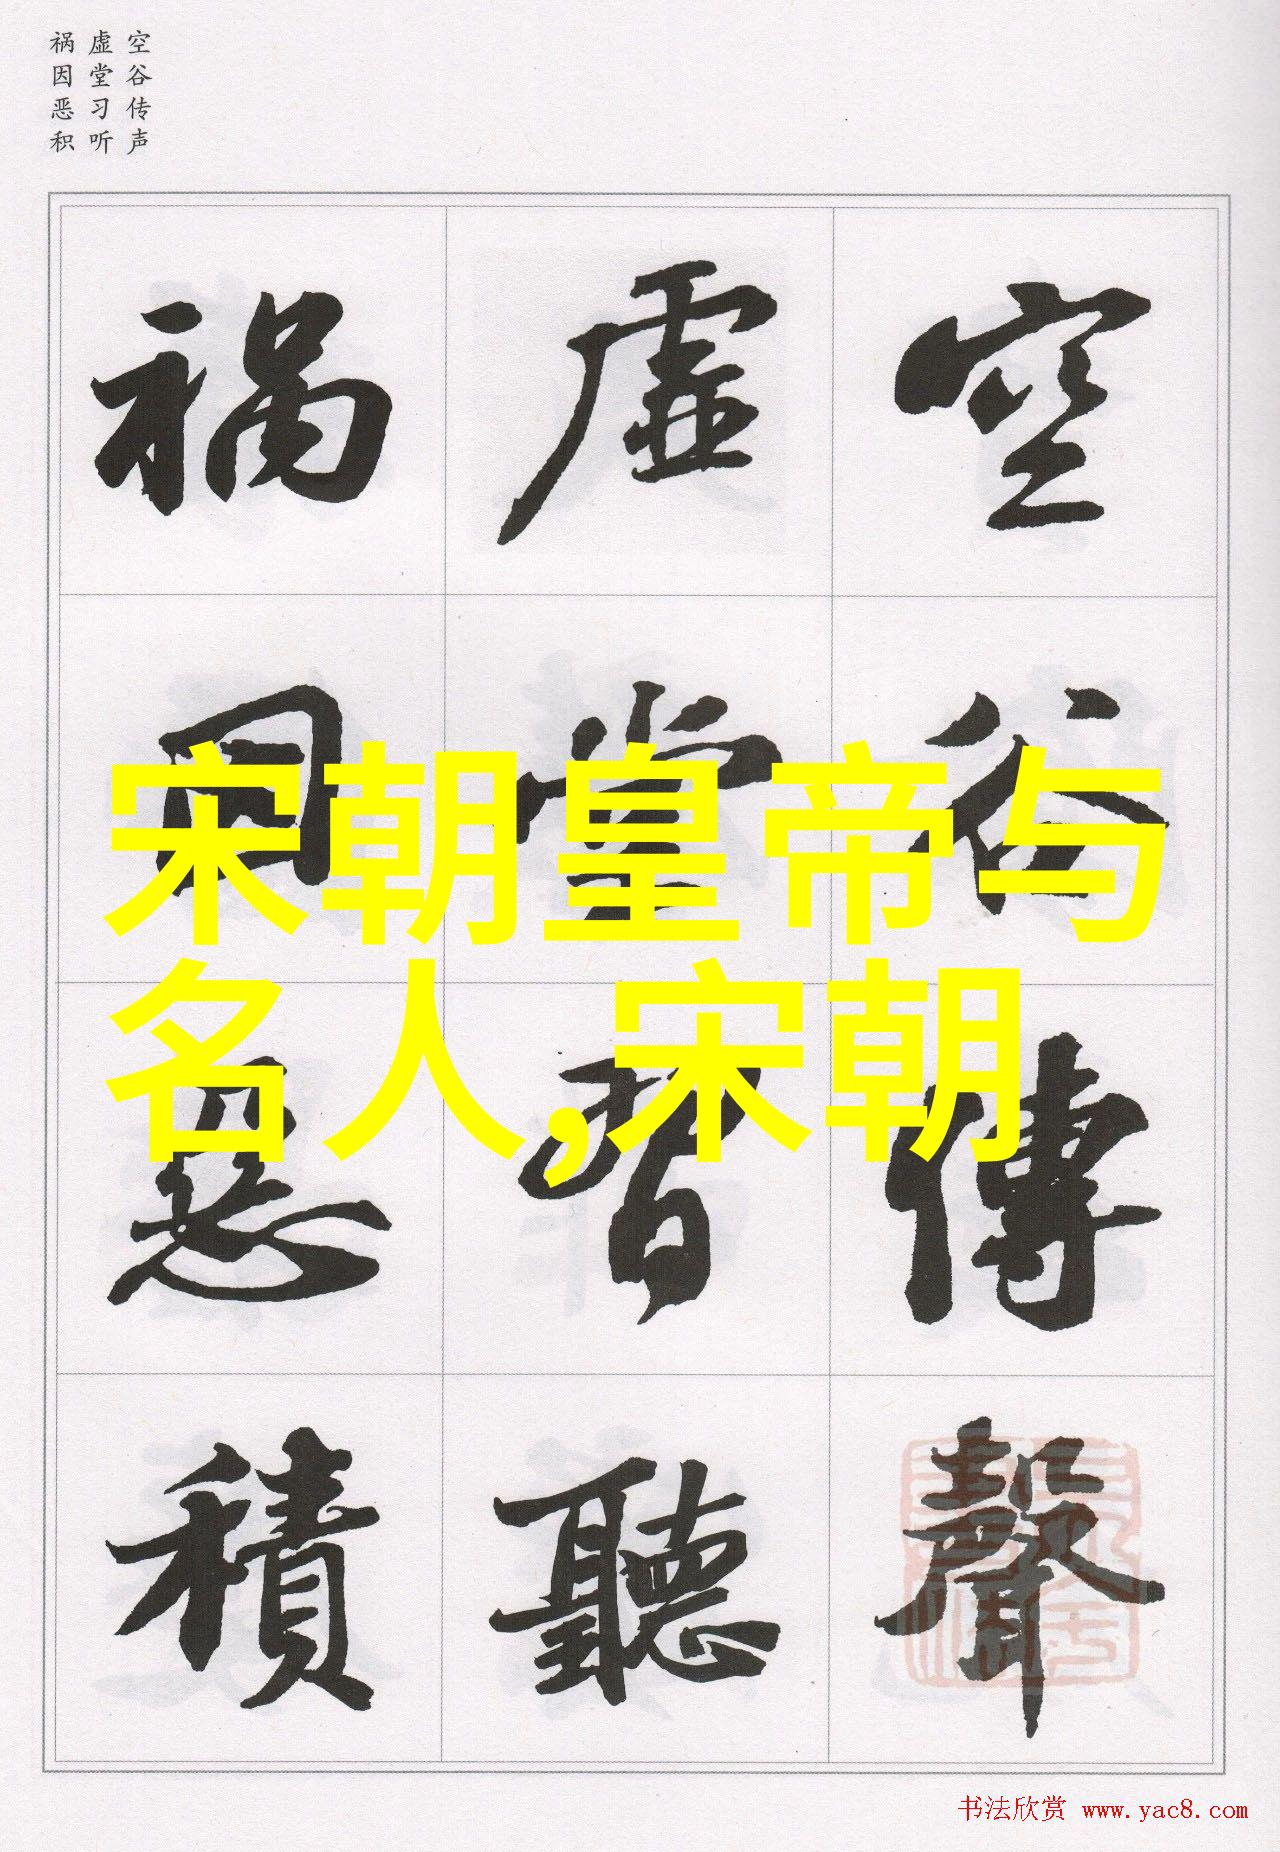 空谷传声
虚堂习听
祸因恶积
空谷傳聲
虚堂習聽
禍因惡積
宋朝皇帝与
名人,宋朝
书法欣赏 www.yac8.com